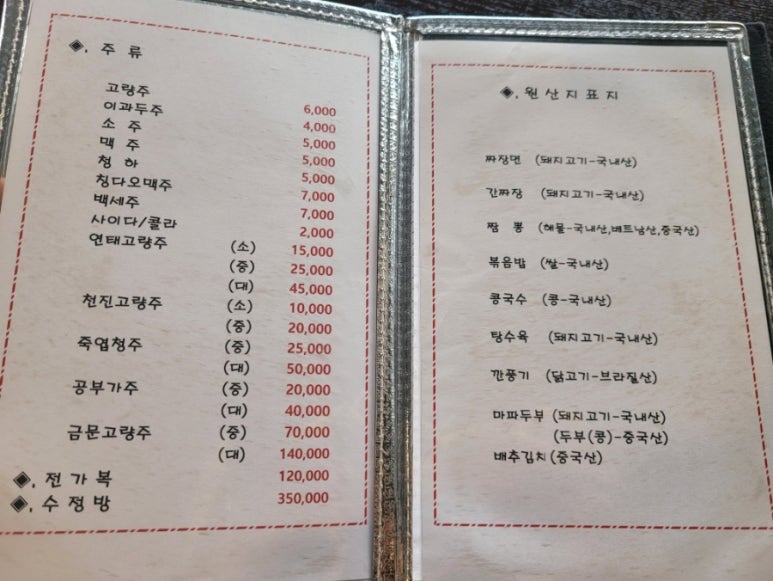 ◈. 주 류
고량주 6,000
이과두주 4,000
소 주 5,000
맥 주 5,000
청 하 5,000
칭다오맥주 7,000
백세주 7,000
사이다/콜라 2,000
연태고량주 (소) 15,000
(중) 25,000
(대) 45,000
천진고량주 (소) 10,000
(중) 20,000
죽엽청주 (중) 25,000
(대) 50,000
공부가주 (중) 20,000
(대) 40,000
금문고량주 (중) 70,000
(대) 140,000
◈. 전 가 복 120,000
◈. 수 정 방 350,000
◈. 원 산 지 표 지
짜장면 (돼지고기-국내산)
간짜장 (돼지고기-국내산)
짬 뽕 (해물-국내산,베트남산,중국산)
볶음밥 (쌀-국내산)
콩국수 (콩-국내산)
탕수육 (돼지고기-국내산)
깐풍기 (닭고기-브라질산)
마파두부 (돼지고기-국내산)
(두부(콩)-중국산)
배추김치 (중국산)